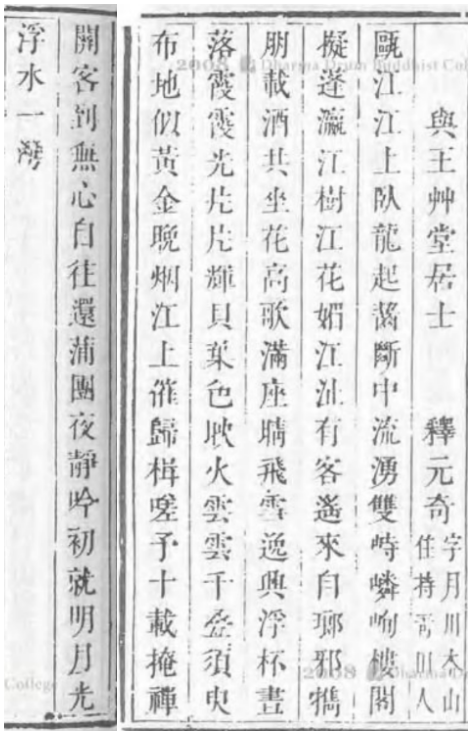 與王艸堂居士 釋元奇 字月川本山
住持青田人
甌江江上臥龍起齧斷中流湧雙峙嶙峋樓閣
擬蓬瀛江樹江花媚江沚有客遙來自瑯邪攜
朋載酒共坐花高歌滿座晴飛雪逸興浮杯晝
落霞霞光片片輝貝葉色映火雲雲千叠須臾
布地似黃金晚烟江上催歸楫嗟予十載掩禪
關客到無心自往還蒲團夜靜吟初就明月光
浮水一灣
2008 Dharma Drum Buddhist Col
2008 Dharma D
College